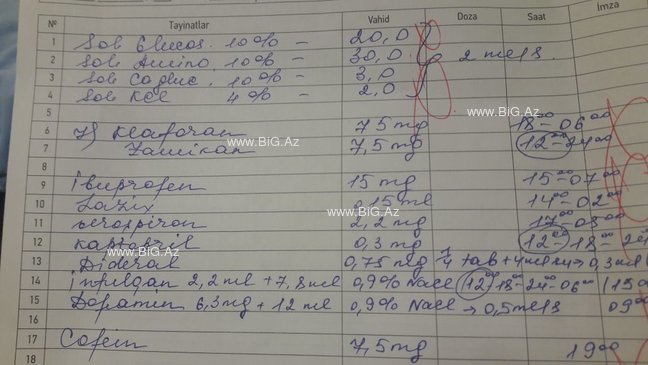 № Təyinatlar Vahid Doza Saat İmza
1 Sol Glucos. 10% - 20,0
2 Sol Amino. 10% - 30,0 2 ml/s.
3 Sol Ca gluc. 10% - 3,0
4 Sol KCl 4% - 2,0
www.BiG.Az
5
6 75 mg 18 00 - 06 00
7 7,5 mg 12 00 - 24 00
www.BiG.Az
8
9 İbuprofen 15 mg 15 00 - 07 00
10 Lazix 0,15 ml 14 00 - 02 00
www.BiG.Az
11 verospiron 2,2 mg 17 00 - 05 00
12 kaptopril 0,3 mg 12 00 - 18 00 - 24
www.BiG.Az
13 Dideral 0,75 mg 1/4 tab + 4 ml → 0,3 ml
14 infulgan 2,2 ml + 7,8 ml 0,9% NaCl 12 00 - 18 00 - 24 00 - 06 00
15 Dopamin 6,3 mg + 12 ml 0,9% NaCl → 0,5 ml/s 09 00
16
17 Cofein 7,5 mg 19 00
18